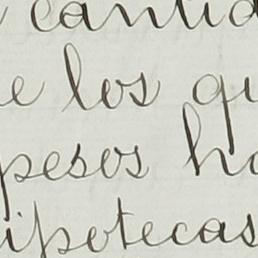 cantid
e los qu
pesos ha
ipotecas